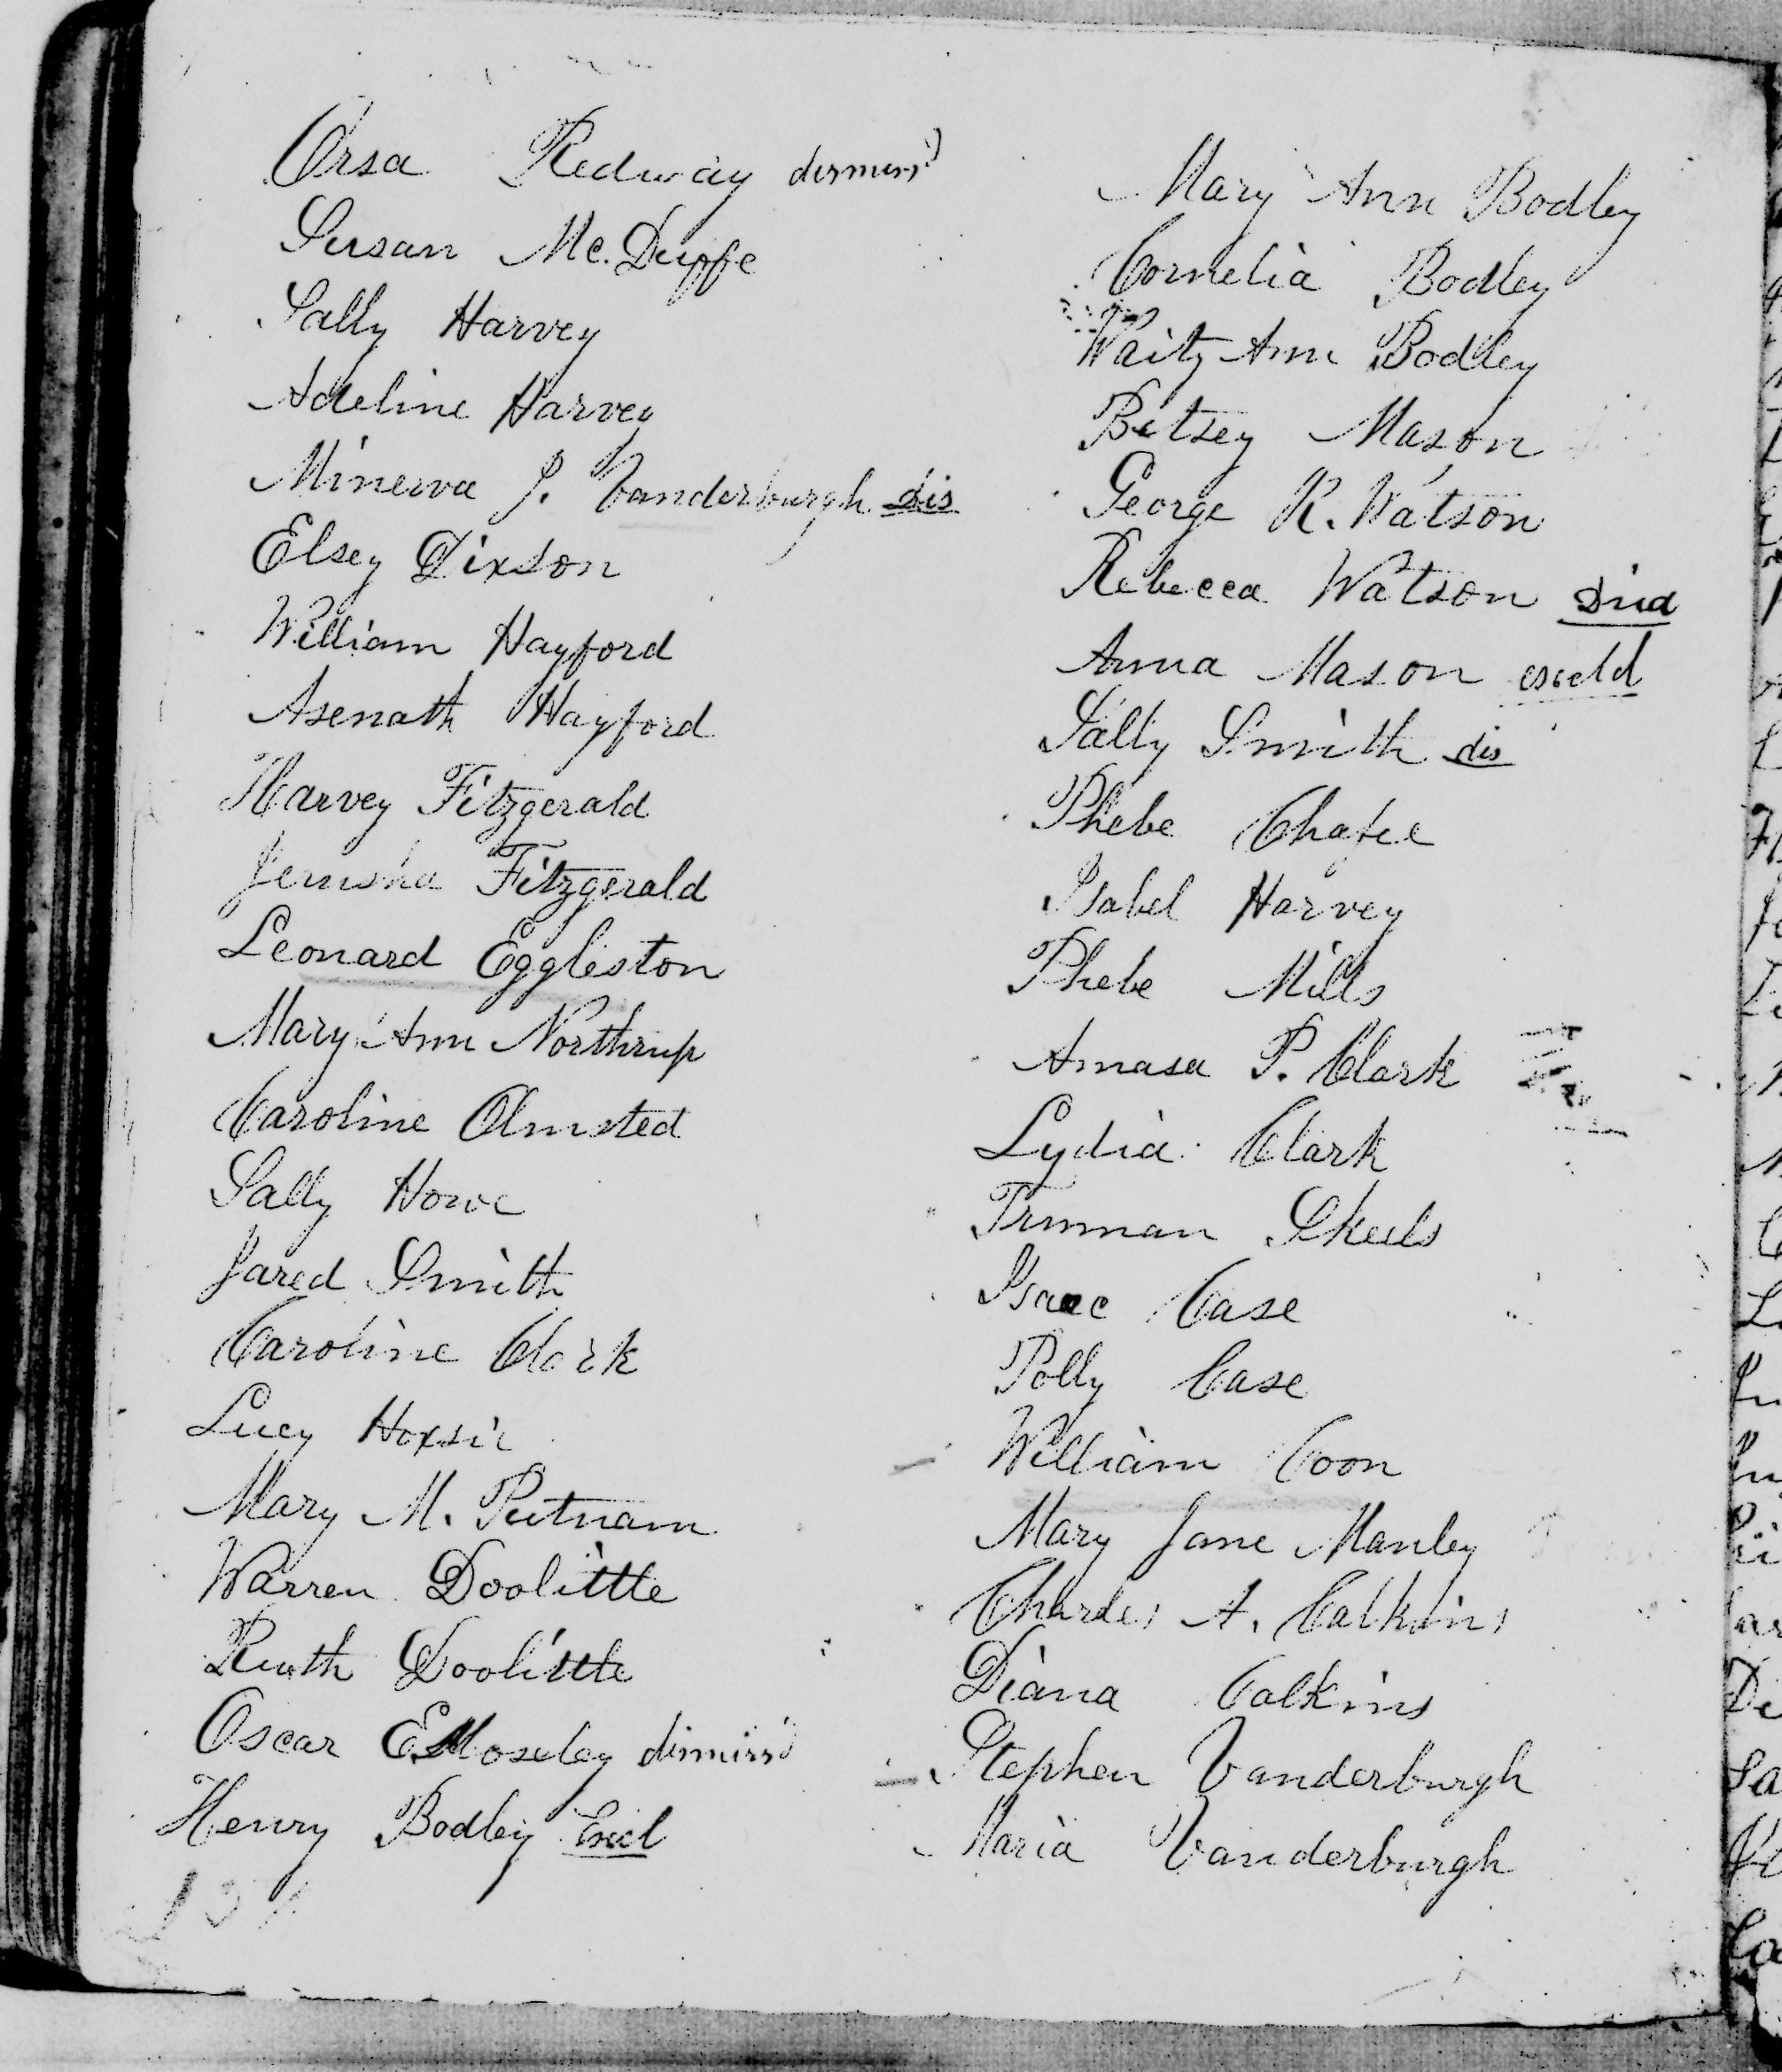 Orsa Redway dismiss'd
Susan Mc. Duffe
Sally Harvey
Adeline Harvey
Minerva J. Vanderburgh dis
Elsey Dixson
William Hayford
Asenath Hayford
Harvey Fitzgerald
Jerusha Fitzgerald
Leonard Eggleston
Mary Ann Northrup
Caroline Olmsted
Sally Howe
Jared Smith
Caroline Clark
Lucy Hoxsie
Mary M. Putnam
Warren Doolittle
Ruth Doolittle
Oscar E. Moseley dismiss'd
Henry Bodley Excl
Mary Ann Bodley
Cornelia Bodley
Waity Ann Bodley
Betsey Mason
George R. Watson
Rebecca Watson Died
Anna Mason
Sally Smith dis
Phebe Chafee
Isabel Harvey
Phebe Mills
Amasa P. Clark
Lydia Clark
Truman Skeels
Isaac Case
Polly Case
William Coon
Mary Jane Manley
Charles A. Calkins
Diana Calkins
Stephen Vanderburgh
Maria Vanderburgh